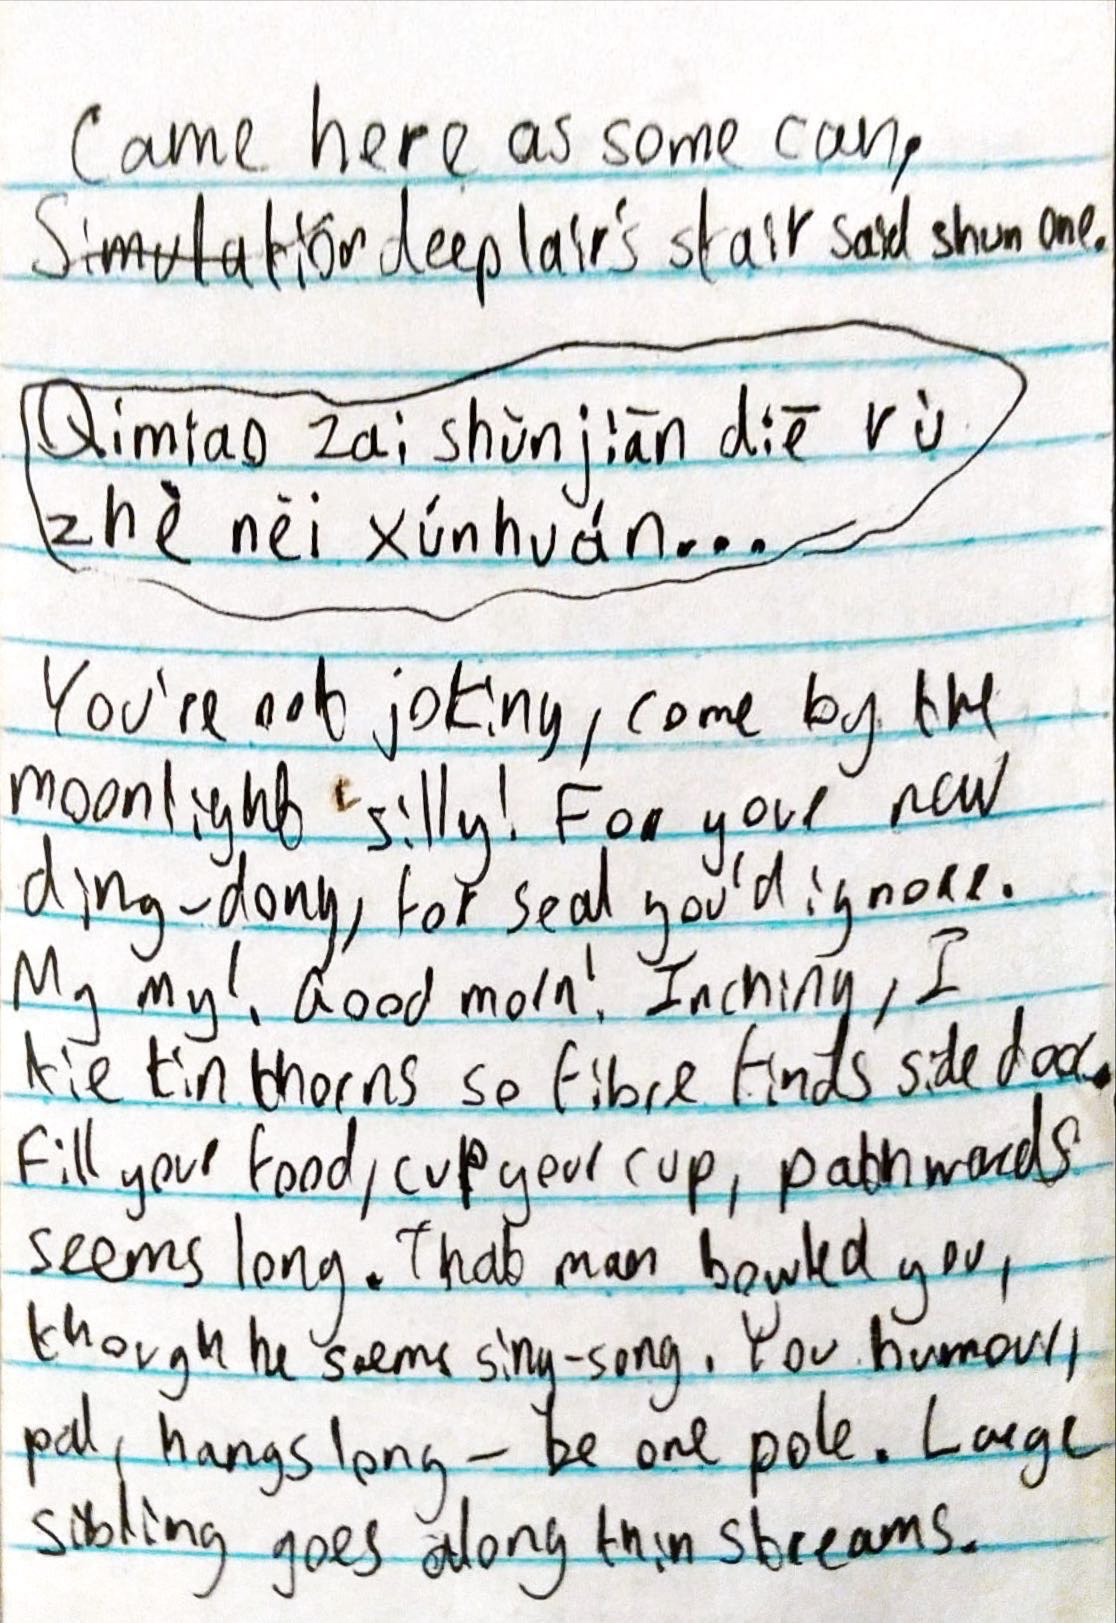 Came here as some can,
Simulation deep lair's stair said shun one.
Qimiao zai shùnjiān diē rù
zhè nèi xúnhuán...
You're not joking, come by the
moonlight silly! For your new
ding-dong, for seal you'd ignore.
My my! Good morn! Inching, I
tie tin thorns so fibre finds side door.
Fill your food, cup your cup, pathwards
seems long. That man bowled you,
though he seems sing-song. You humour,
pal, hangs long - be one pole. Large
sibling goes along thin streams.